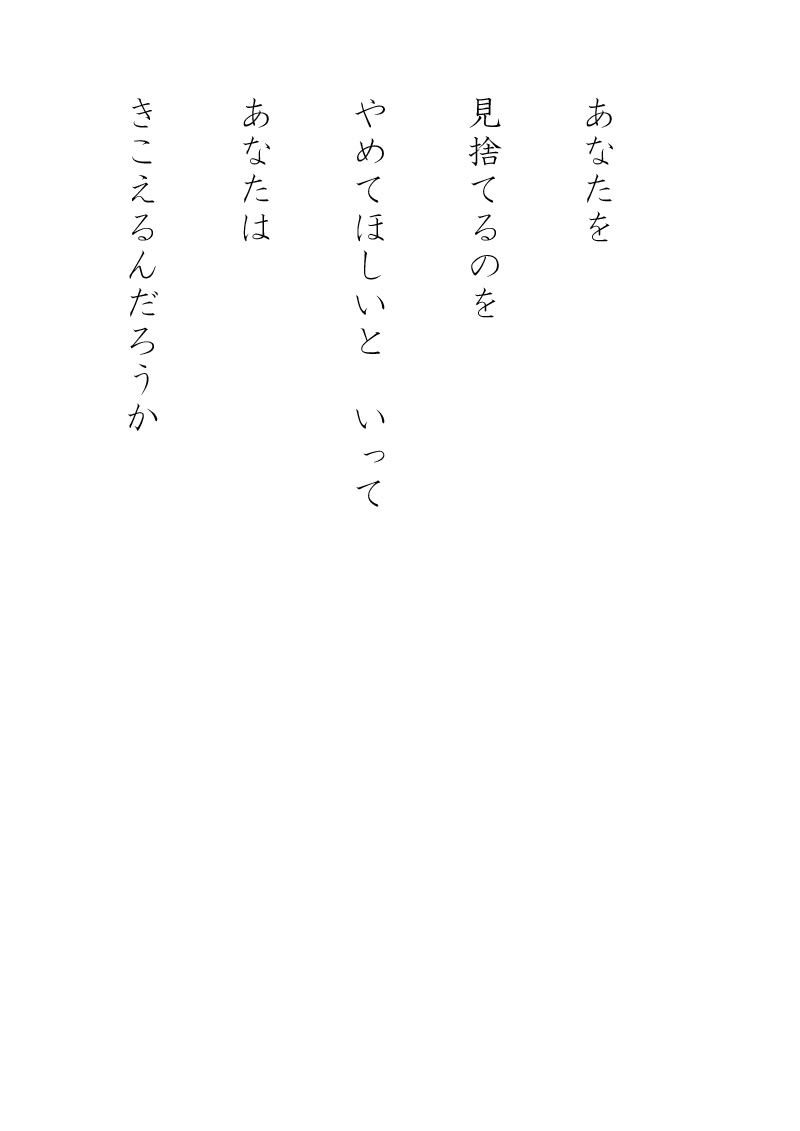 あなたを
見捨てるのを
やめてほしいと　いって
あなたは
きこえるんだろうか